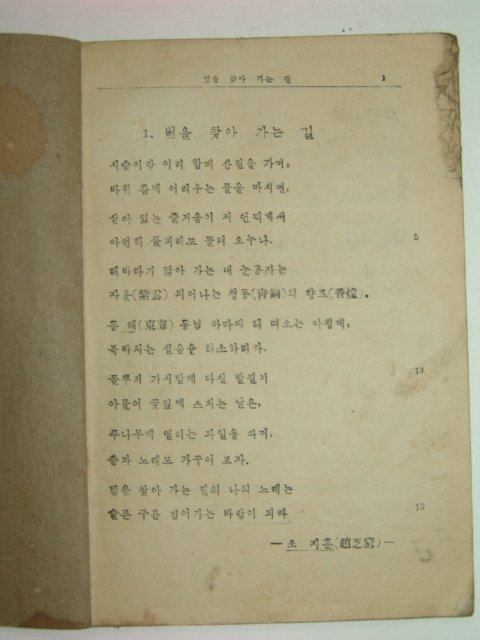 빛을 찾아 가는 길 1
1. 빛을 찾아 가는 길
사슴이랑 이리 함께 산길을 가며,
바위 틈에 어리우는 물을 마시면,
살아 있는 즐거움이 저 언덕에서
아련히 풀피리도 들려 오누나. 5
해바라기 닮아 가는 내 눈동자는
자운(紫雲) 피어나는 청동(靑銅)의 향로(香爐).
동 해(東海) 동녘 바다에 해 떠오는 아침에,
북바치는 설음을 하소하리라.
돌뿌리 가시밭에 다친 발길이 10
아물어 꽃잎에 스치는 날은,
푸나무에 열리는 과일을 따며,
춤과 노래도 가꾸어 보자.
빛을 찾아 가는 길의 나의 노래는
슬픈 구름 걷어가는 바람이 되라. 15
—조 지훈(趙芝薰)—